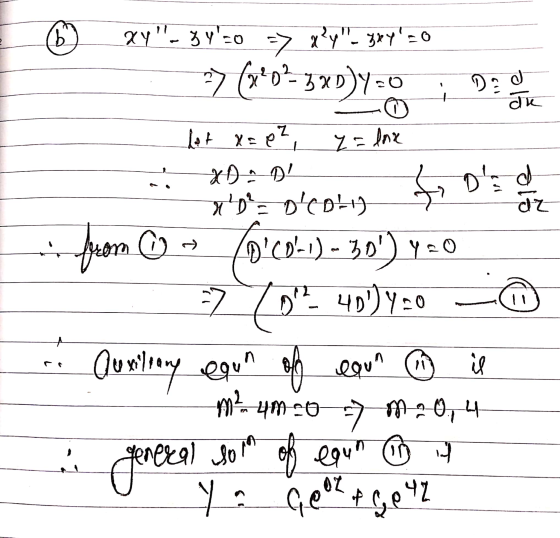 (b) xy'' - 3y' = 0 => x²y'' - 3xy' = 0
=> (x²D² - 3xD)y = 0 ; D ≡ d/dx
—— (i)
Let x = e^z, z = lnx
∴ xD = D'
x²D² = D'(D'-1) } → D' ≡ d/dz
∴ from (i) → (D'(D'-1) - 3D') y = 0
=> (D'² - 4D')y = 0 —— (ii)
∴ Auxiliary equⁿ of equⁿ (ii) is
m² - 4m = 0 => m = 0, 4
∴ general solⁿ of equⁿ (ii) is
y = c₁e^{0z} + c₂e^{4z}